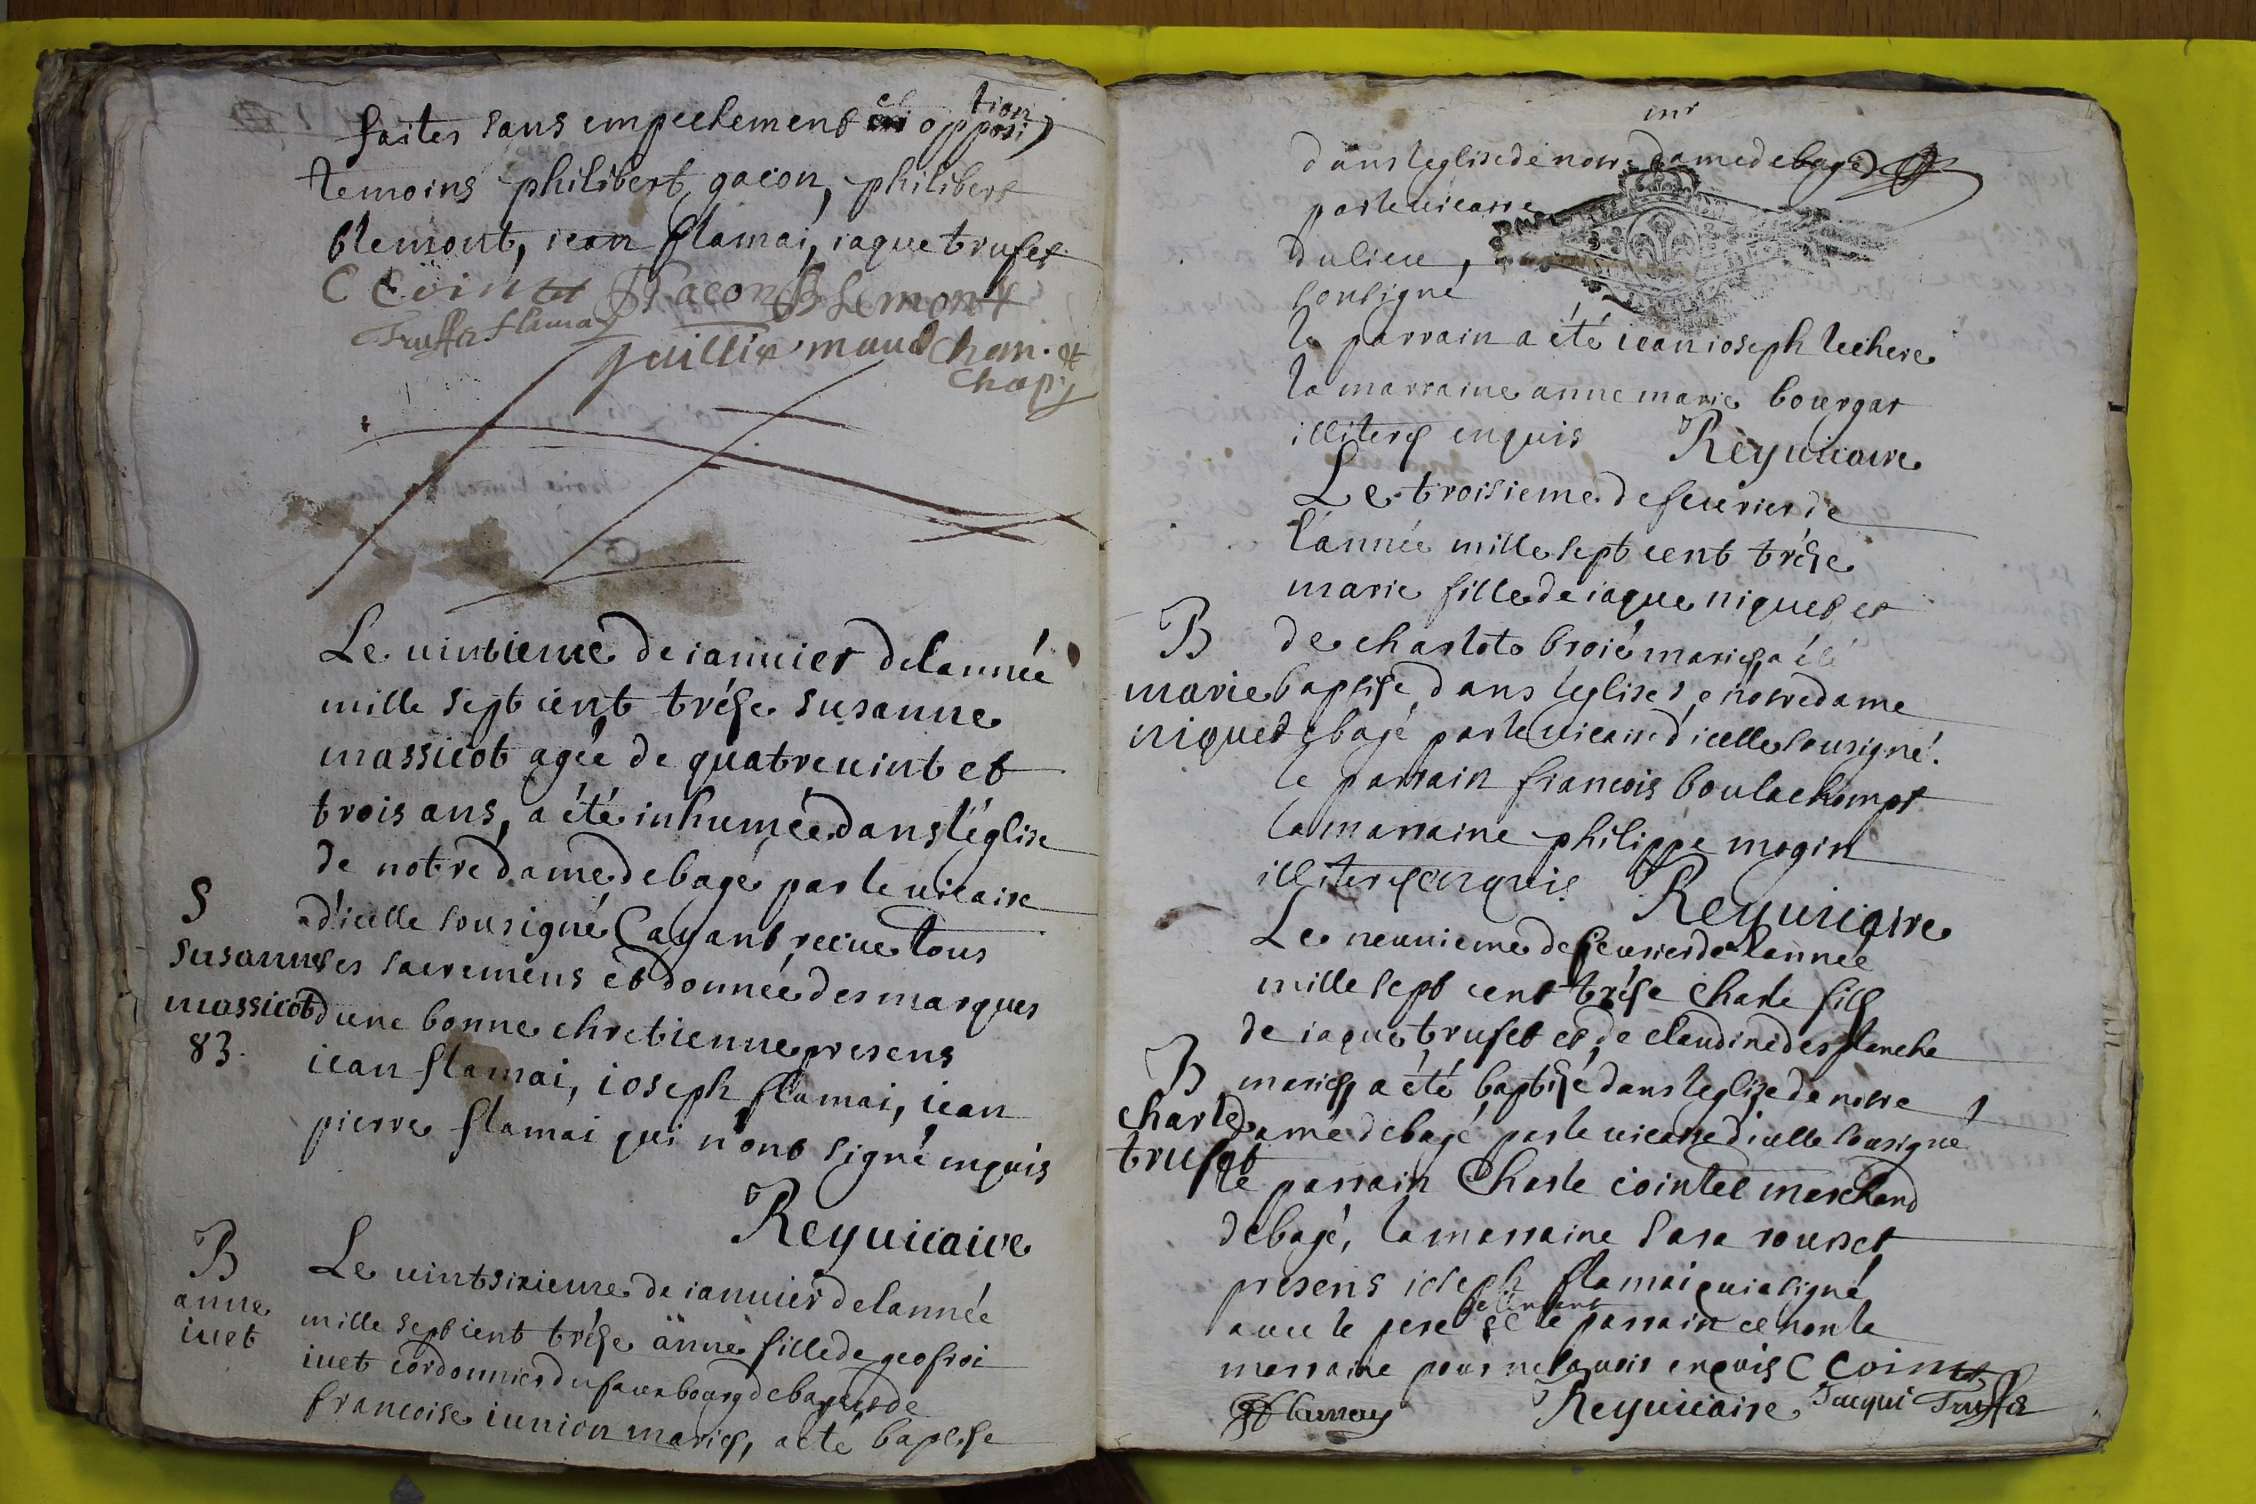 faites sans empechement et opposition
temoins philibert gacon, philibert
blemont, iean flamai, iaque trufet
C Cointet Gacon Blemont
Truffet flamay
guillermaud chan. et
chap.
Le uintieme de ianuier de lannée
mille sept cent trése susanne
massicot agée de quatreuint et
trois ans, a été inhumée dans l'église
de notre dame de bagé par le uicaire
S
d'icelle sousigné ayant receue tous
susanne
les sacremens et donnée des marques
massicot
dune bonne chretienne presens
83.
iean flamai, ioseph flamai, iean
pierre flamai qui n'ont signé enquis
Rey uicaire
B
Le uintsixieme de ianuier de lannée
anne
iuet
mille sept cent trése anne fille de geofroi
iuet cordonnier du fauxbourg de bagé et de
francoise iunion mariés, a eté baptisé
dans leglise de notre dame de bagé
par le uicaire
du lieu,
sousigné
le parrain a été iean ioseph lechere
la marraine anne marie bourgat
illiterés enquis Rey uicaire
Le troisieme de feurier de
l'année mille sept cent trése
marie fille de iaque niquet et
B
de charlote broié mariés, a été
marie
baptisé dans leglise de notre dame
niquet
de bagé par le uicaire d'icelle sousigné.
le parrain francois boulachomps
la marraine philippe mogin
illiterés enquis Rey uicaire
Le neuuieme de feurier de lannée
mille sept cent trése charle fils
de iaque trufet et de claudine desplanche
B
mariés, a été baptisé dans leglise de notre
charle
dame de bagé par le uicaire d'icelle sousigné
trufet
le parrain Charle cointet marchand
de bagé, la marraine sara rousset
presens ioseph flamai qui a signé
auec le pere et le parrain et non la
marraine pour ne sauoir enquis C Cointet
flamay Rey uicaire Jacque Truffet